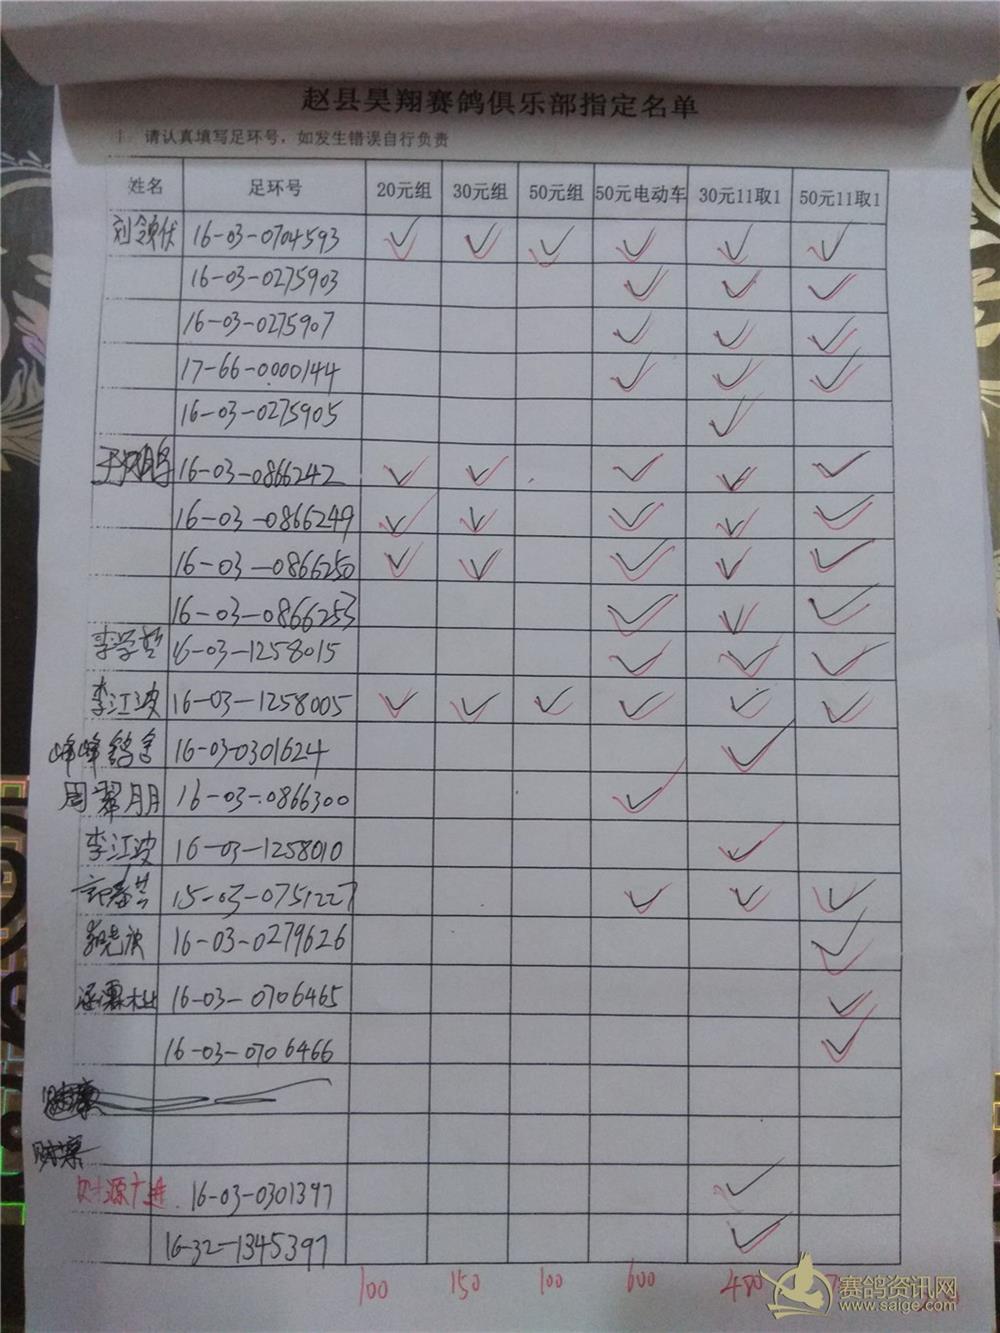 赵县昊翔赛鸽俱乐部指定名单
请认真填写足环号，如发生错误自行负责
姓名 足环号 20元组 30元组 50元组 50元电动车 30元11取1 50元11取1
16-03-0704593 ✓ ✓ ✓ ✓ ✓ ✓
16-03-0275903 ✓ ✓ ✓
16-03-0275907 ✓ ✓ ✓
17-66-0000144 ✓ ✓ ✓
16-03-0275905 ✓
16-03-0866242 ✓ ✓ ✓ ✓ ✓
16-03-0866249 ✓ ✓ ✓ ✓ ✓
16-03-0866250 ✓ ✓ ✓ ✓ ✓
16-03-0866253 ✓ ✓ ✓
李学哲 16-03-1258015 ✓ ✓ ✓
李江波 16-03-1258005 ✓ ✓ ✓ ✓ ✓ ✓
峰峰鸽舍 16-03-0301624 ✓
周翠朋 16-03-0866300 ✓
李江波 16-03-1258010 ✓
15-03-0751227 ✓ ✓ ✓
16-03-0279626 ✓
16-03-0706465 ✓
16-03-0706466 ✓
财源广进 16-03-0301397 ✓
16-32-1345397 ✓
100 150 100 600 480
赛鸽资讯网
www.saige.com